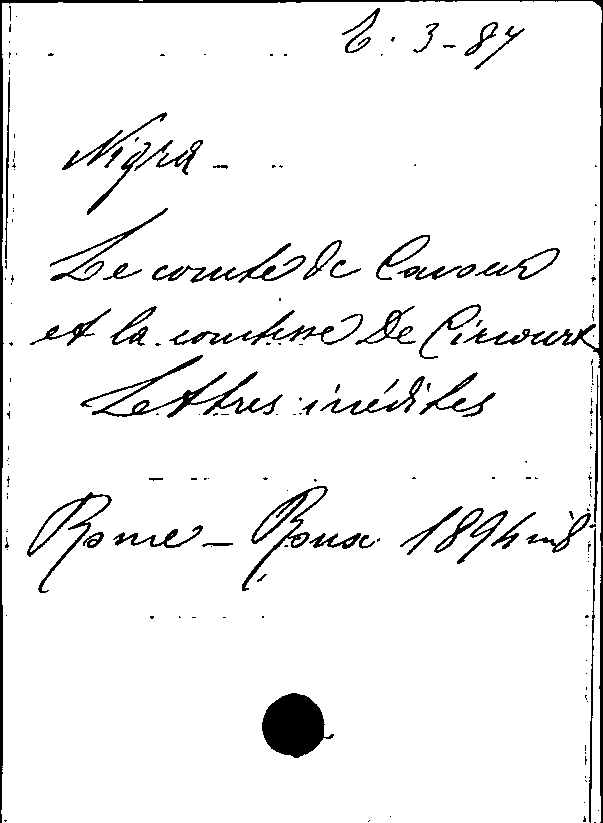 6. 3-87
Nigra -
Le comte de Cavour
et la comtesse De Circourt
Lettres inédites
Rome - Roux 1894 in 8°